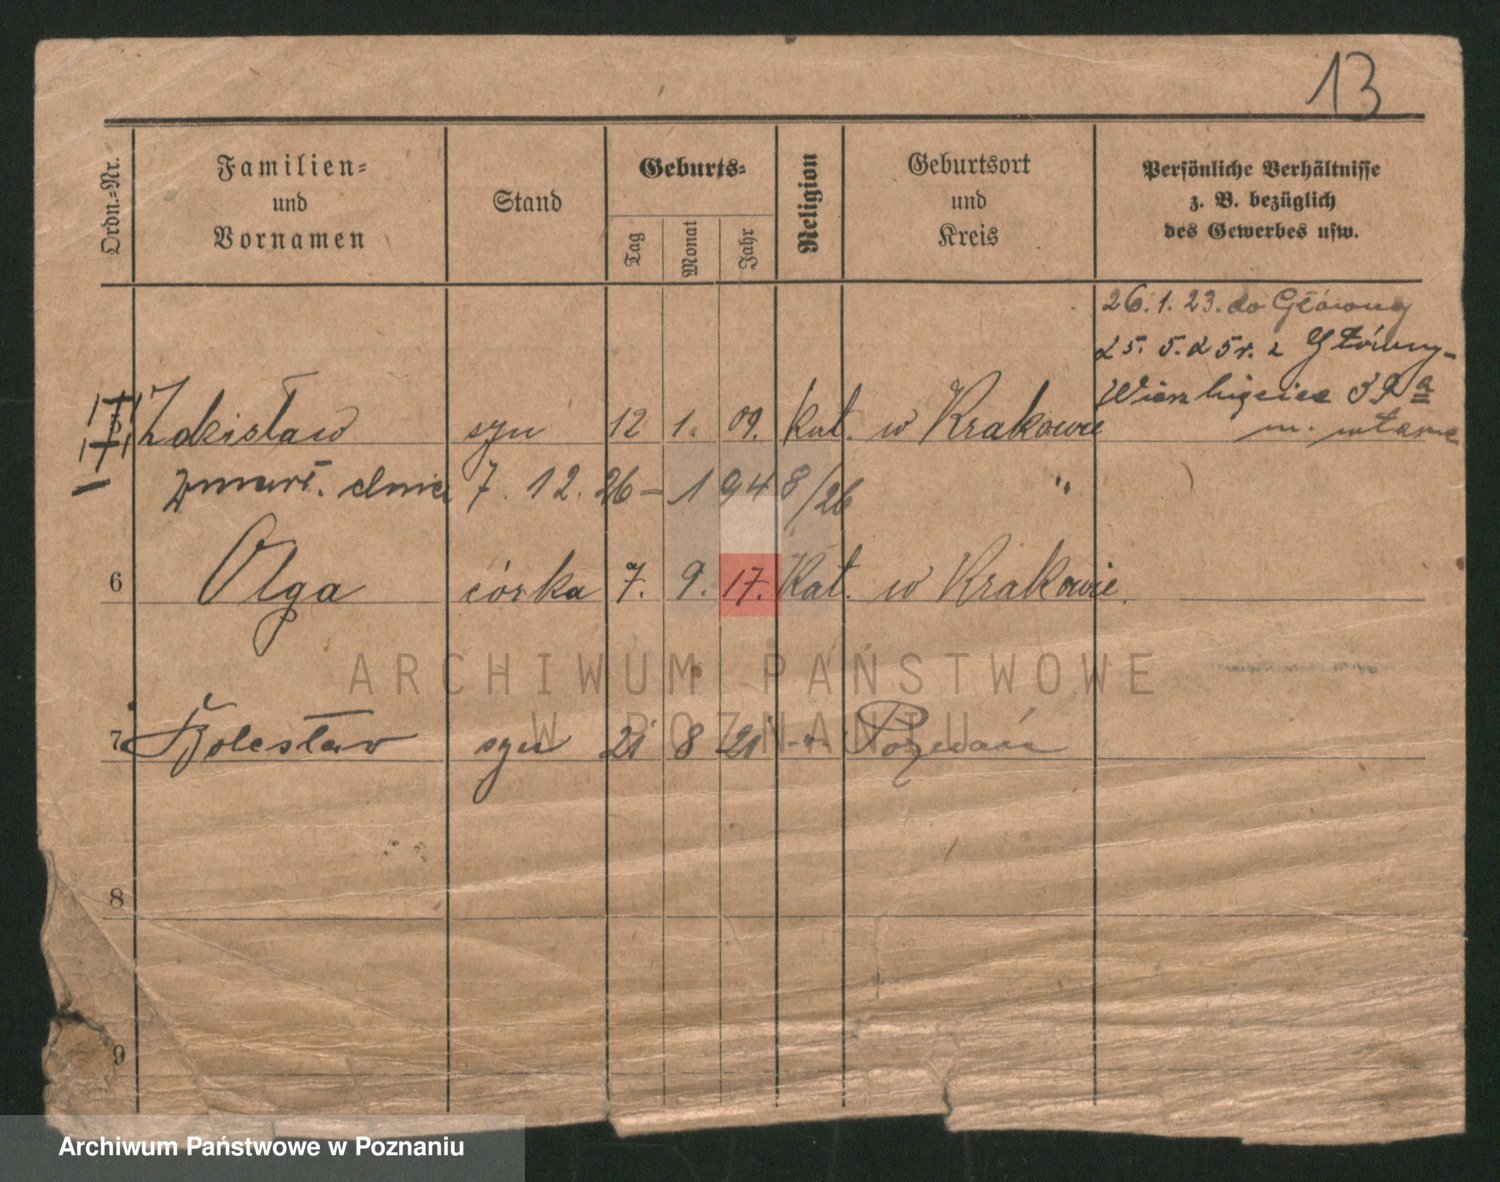 13
Ordn.-Nr.
Familien-
und
Vornamen
Stand
Geburts-
Tag
Monat
Jahr
Religion
Geburtsort
und
Kreis
Persönliche Verhältnisse
z. B. bezüglich
des Gewerbes usw.
26.1.23. do Główny
25. 5. 25r. z Główny-
39a
m. własne
5 Zdzisław syn 12 1. 09. kat. w Krakowie
zmarł. dnia 7. 12. 26 - 1948/26 "
6 Olga córka 7. 9. 17. Kat. w Krakowie.
7 Bolesław syn 21 8 21 -"- Poznań
8
9
ARCHIWUM PAŃSTWOWE
W POZNANIU
Archiwum Państwowe w Poznaniu